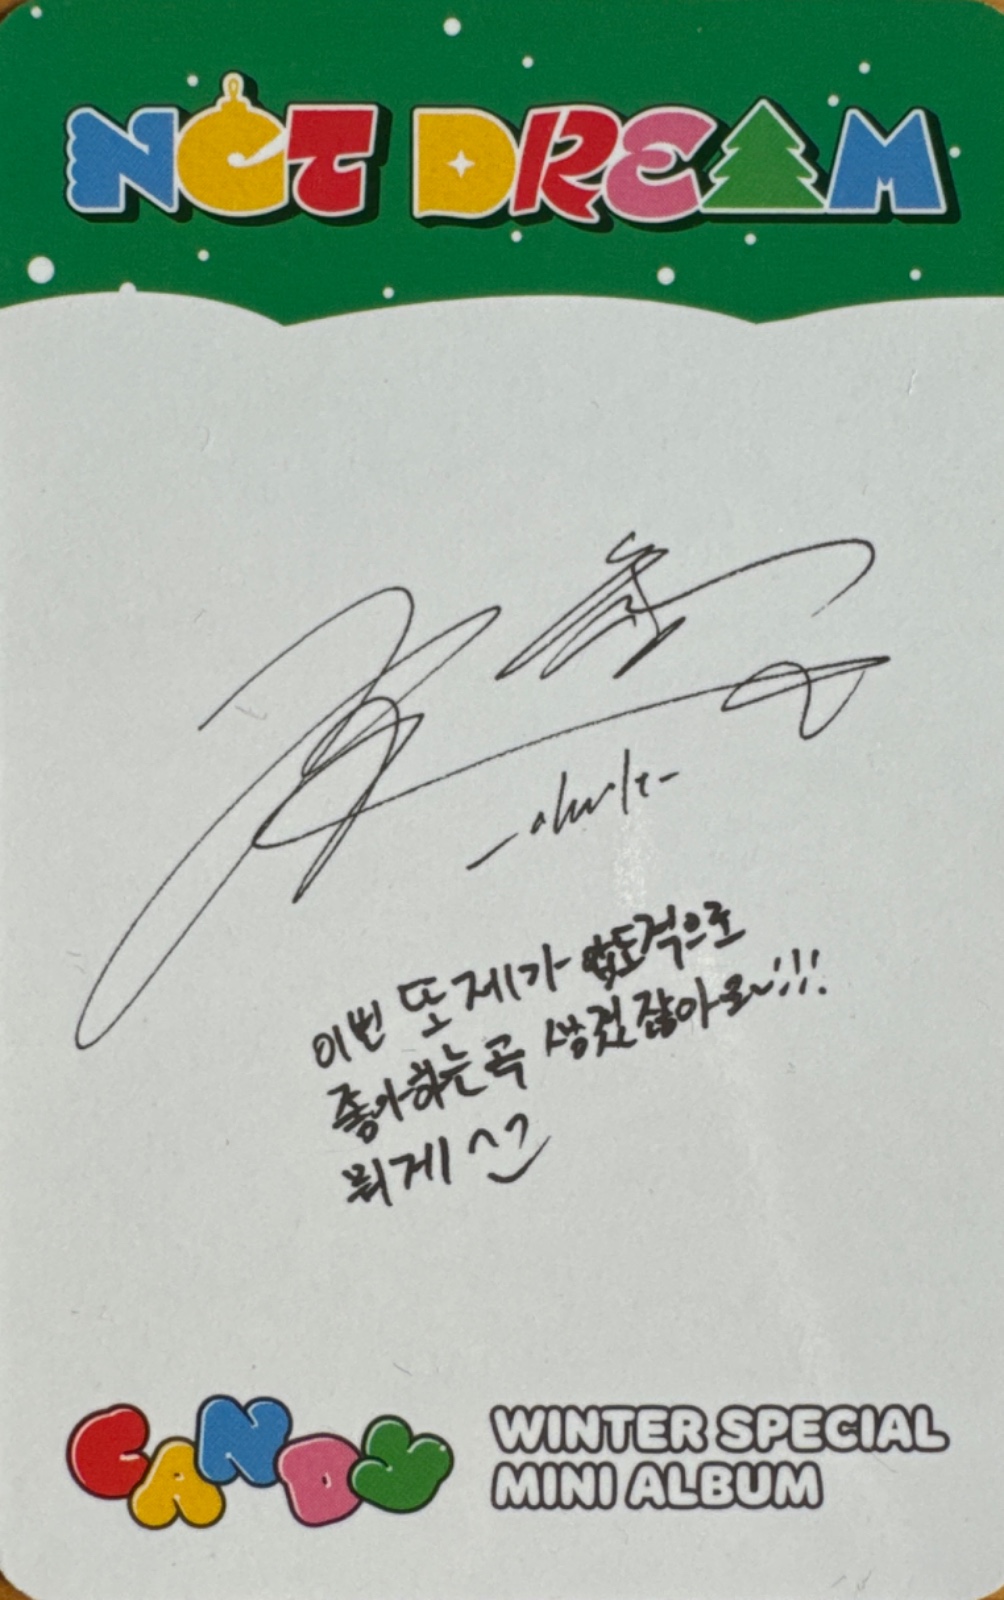 NCT DREAM
이번 또 제가 압도적으로
좋아하는 곡 생겼잖아요~!!!
뭐게 ^^
CANDY
WINTER SPECIAL
MINI ALBUM